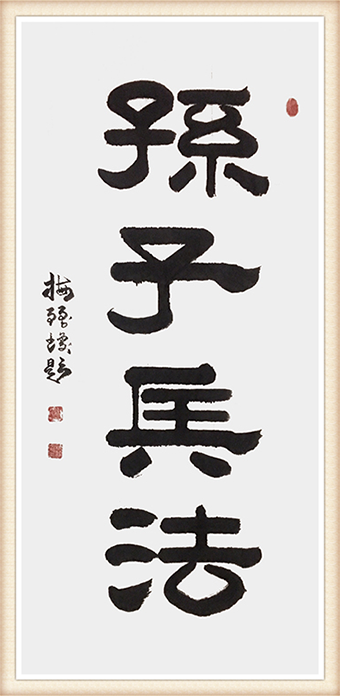 孫子兵法
題